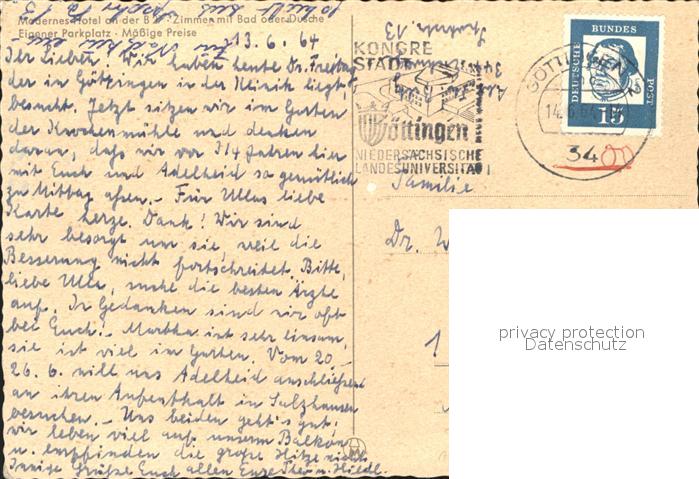 Modernes Hotel an der B 3 - Zimmer mit Bad oder Dusche
Eigener Parkplatz - Mäßige Preise
13. 6. 64
Ihr Lieben! Wir haben heute Dr. Freitag
der in Göttingen in der Klinik liegt,
besucht. Jetzt sitzen wir im Garten
der Knochenmühle und denken
daran, daß wir vor 3/4 Jahren hier
mit Euch und Adelheid so gemütlich
zu Mittag aßen. - Für Ullas liebe
Karte herzl. Dank! Wir sind
sehr besorgt um sie, weil die
Besserung nicht fortschreitet. Bitte,
liebe Ulla, suche die besten Ärzte
auf. In Gedanken sind wir oft
bei Euch! - Martha ist sehr einsam,
sie ist viel im Garten. Vom 20.-
26. 6. will uns Adelheid anschließend
an ihren Aufenthalt in Salzhausen
besuchen. - Uns beiden geht's gut,
wir leben viel auf unserm Balkon
u. empfinden die große Hitze nicht.
Innige Grüße Euch allen Eure Theo u. Hiedl.
KONGRE
STADT
Göttingen
NIEDERSÄCHSISCHE
LANDESUNIVERSITÄT
GÖTTINGEN
14.6.64
34
DEUTSCHE
BUNDES
POST
15
Familie
Dr. W
1
privacy protection
Datenschutz